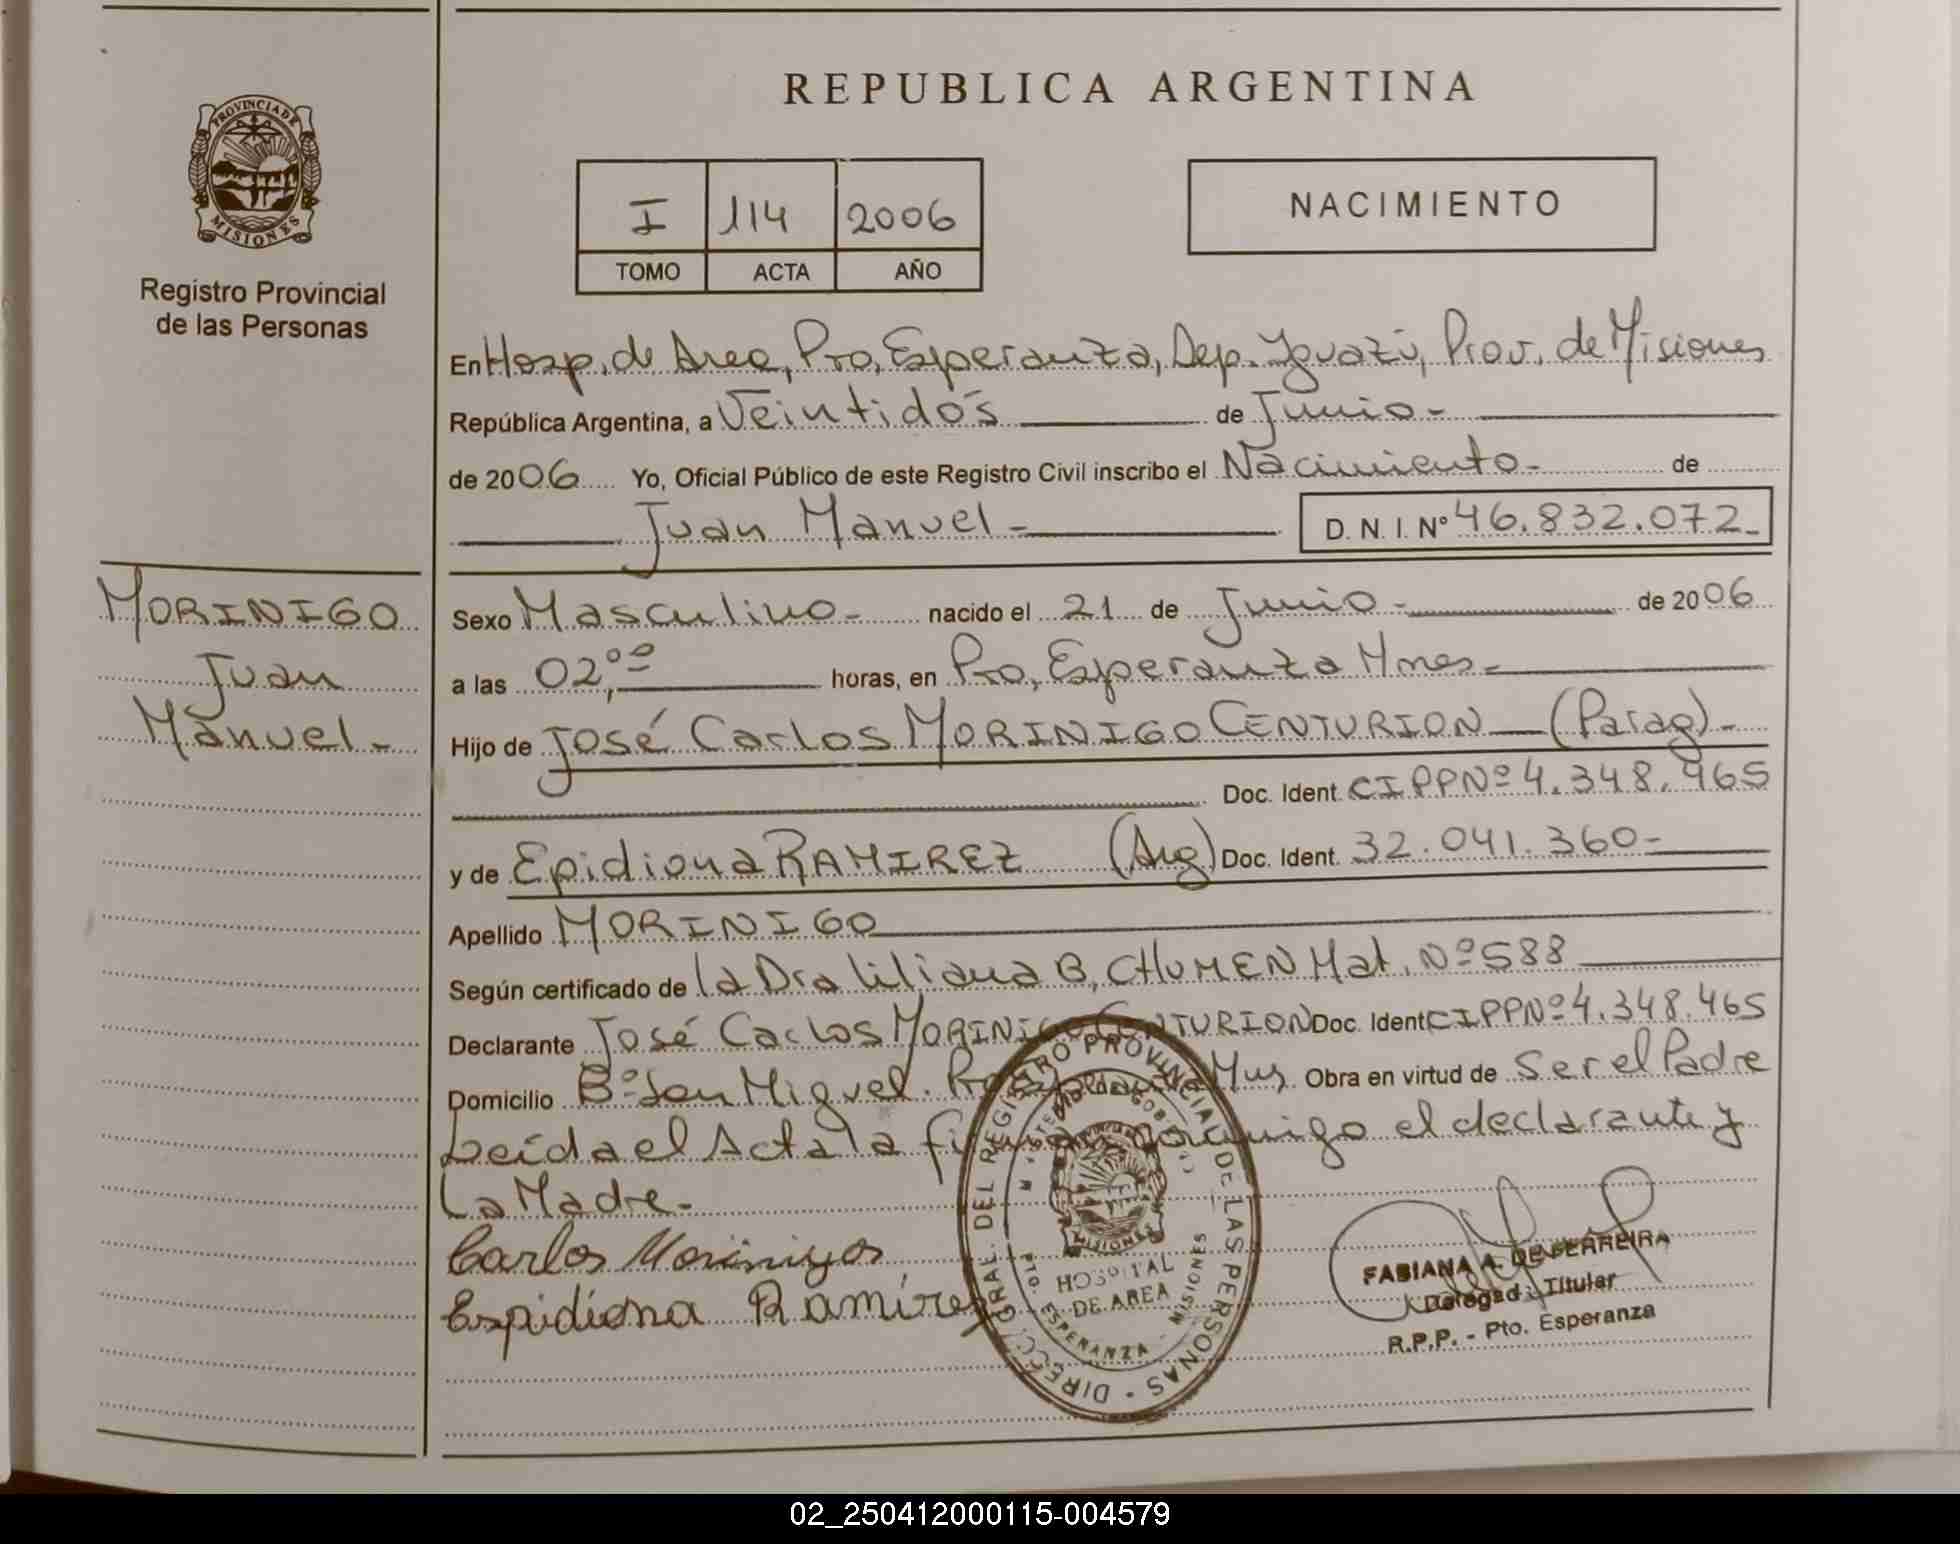 REPUBLICA ARGENTINA
PROVINCIA DE
MISIONES
Registro Provincial
de las Personas
I 114 2006
TOMO ACTA AÑO
NACIMIENTO
En Hosp. de Area, Pto, Esperanza, Dep. Iguazú, Prov. de Misiones
República Argentina, a Veintidós de Junio -
de 2006 Yo, Oficial Público de este Registro Civil inscribo el Nacimiento - de
Juan Manuel - D. N. I. Nº 46.832.072 -
MORINIGO
Juan
Manuel -
Sexo Masculino - nacido el 21 de Junio - de 2006
a las 02,ºº horas, en Pto, Esperanza Mnes -
Hijo de José Carlos MORINIGO CENTURION — (Parag) -
Doc. Ident. CIPPNº 4.348.465
y de Epidiona RAMIREZ (Arg) Doc. Ident. 32.041.360 -
Apellido MORINIGO
Según certificado de la Dra Liliana B, CHUMEN Mat. Nº 588
Declarante José Carlos MORINIGO CENTURION Doc. Ident CIPPNº 4.348.465
Domicilio Bº San Miguel. Pto Esperanza Mns Obra en virtud de Ser el Padre
Leída el Acta la firman conmigo el declarante y
La Madre -
Carlos Morinigo
Espidiona Ramírez
DIRECC. GRAL. DEL REGISTRO PROVINCIAL DE LAS PERSONAS
MISIONES
HOSPITAL
DE AREA
PTO. ESPERANZA - MISIONES
FABIANA A. DE FERREIRA
Delegada Titular
R.P.P. - Pto. Esperanza
02_250412000115-004579